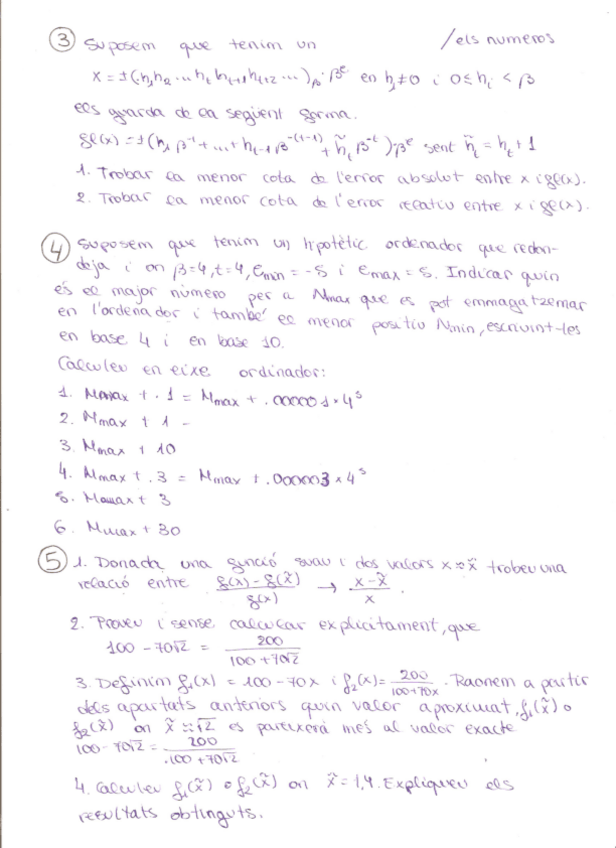 ③ Suposem que tenim un /els numeros
x = ±(.h₁h₂...h_t h_{t+1}h_{t+2}...)_β · β^e en h₁≠0 i 0≤h_i < β
els guarda de la següent forma.
fl(x) = ±(h₁β^{-1}+...+h_{t-1}β^{-(t-1)} + h̃_tβ^{-t})·β^e sent h̃_t = h_t + 1
1. Trobar la menor cota de l'error absolut entre x i fl(x).
2. Trobar la menor cota de l'error relatiu entre x i fl(x).
④ Suposem que tenim un hipotètic ordenador que redon-
deja i on β=4, t=4, e_min = -5 i e_max = 5. Indicar quin
és el major número per a N_max que es pot emmagatzemar
en l'ordenador i també el menor positiu N_min, escrivint-les
en base 4 i en base 10.
Calculeu en eixe ordinador:
1. N_max + .1 = N_max + .000001×4⁵
2. N_max + 1 -
3. N_max + 10
4. N_max + .3 = N_max + .000003×4⁵
5. N_max + 3
6. N_max + 30
⑤ 1. Donada una funció suau i dos valors x≈x̃ trobeu una
relació entre (f(x)-f(x̃))/f(x) → (x-x̃)/x .
2. Proveu i sense calcular explícitament, que
100 - 70√2 = 200/(100+70√2)
3. Definim f₁(x) = 100-70x i f₂(x) = 200/(100+70x). Raonem a partir
dels apartats anteriors quin valor aproximat, f₁(x̃) o
f₂(x̃) on x̃≈√2 es pareixerà més al valor exacte
100-70√2 = 200/(100+70√2)
4. Calculeu f₁(x̃) o f₂(x̃) on x̃=1,4. Expliqueu els
resultats obtinguts.